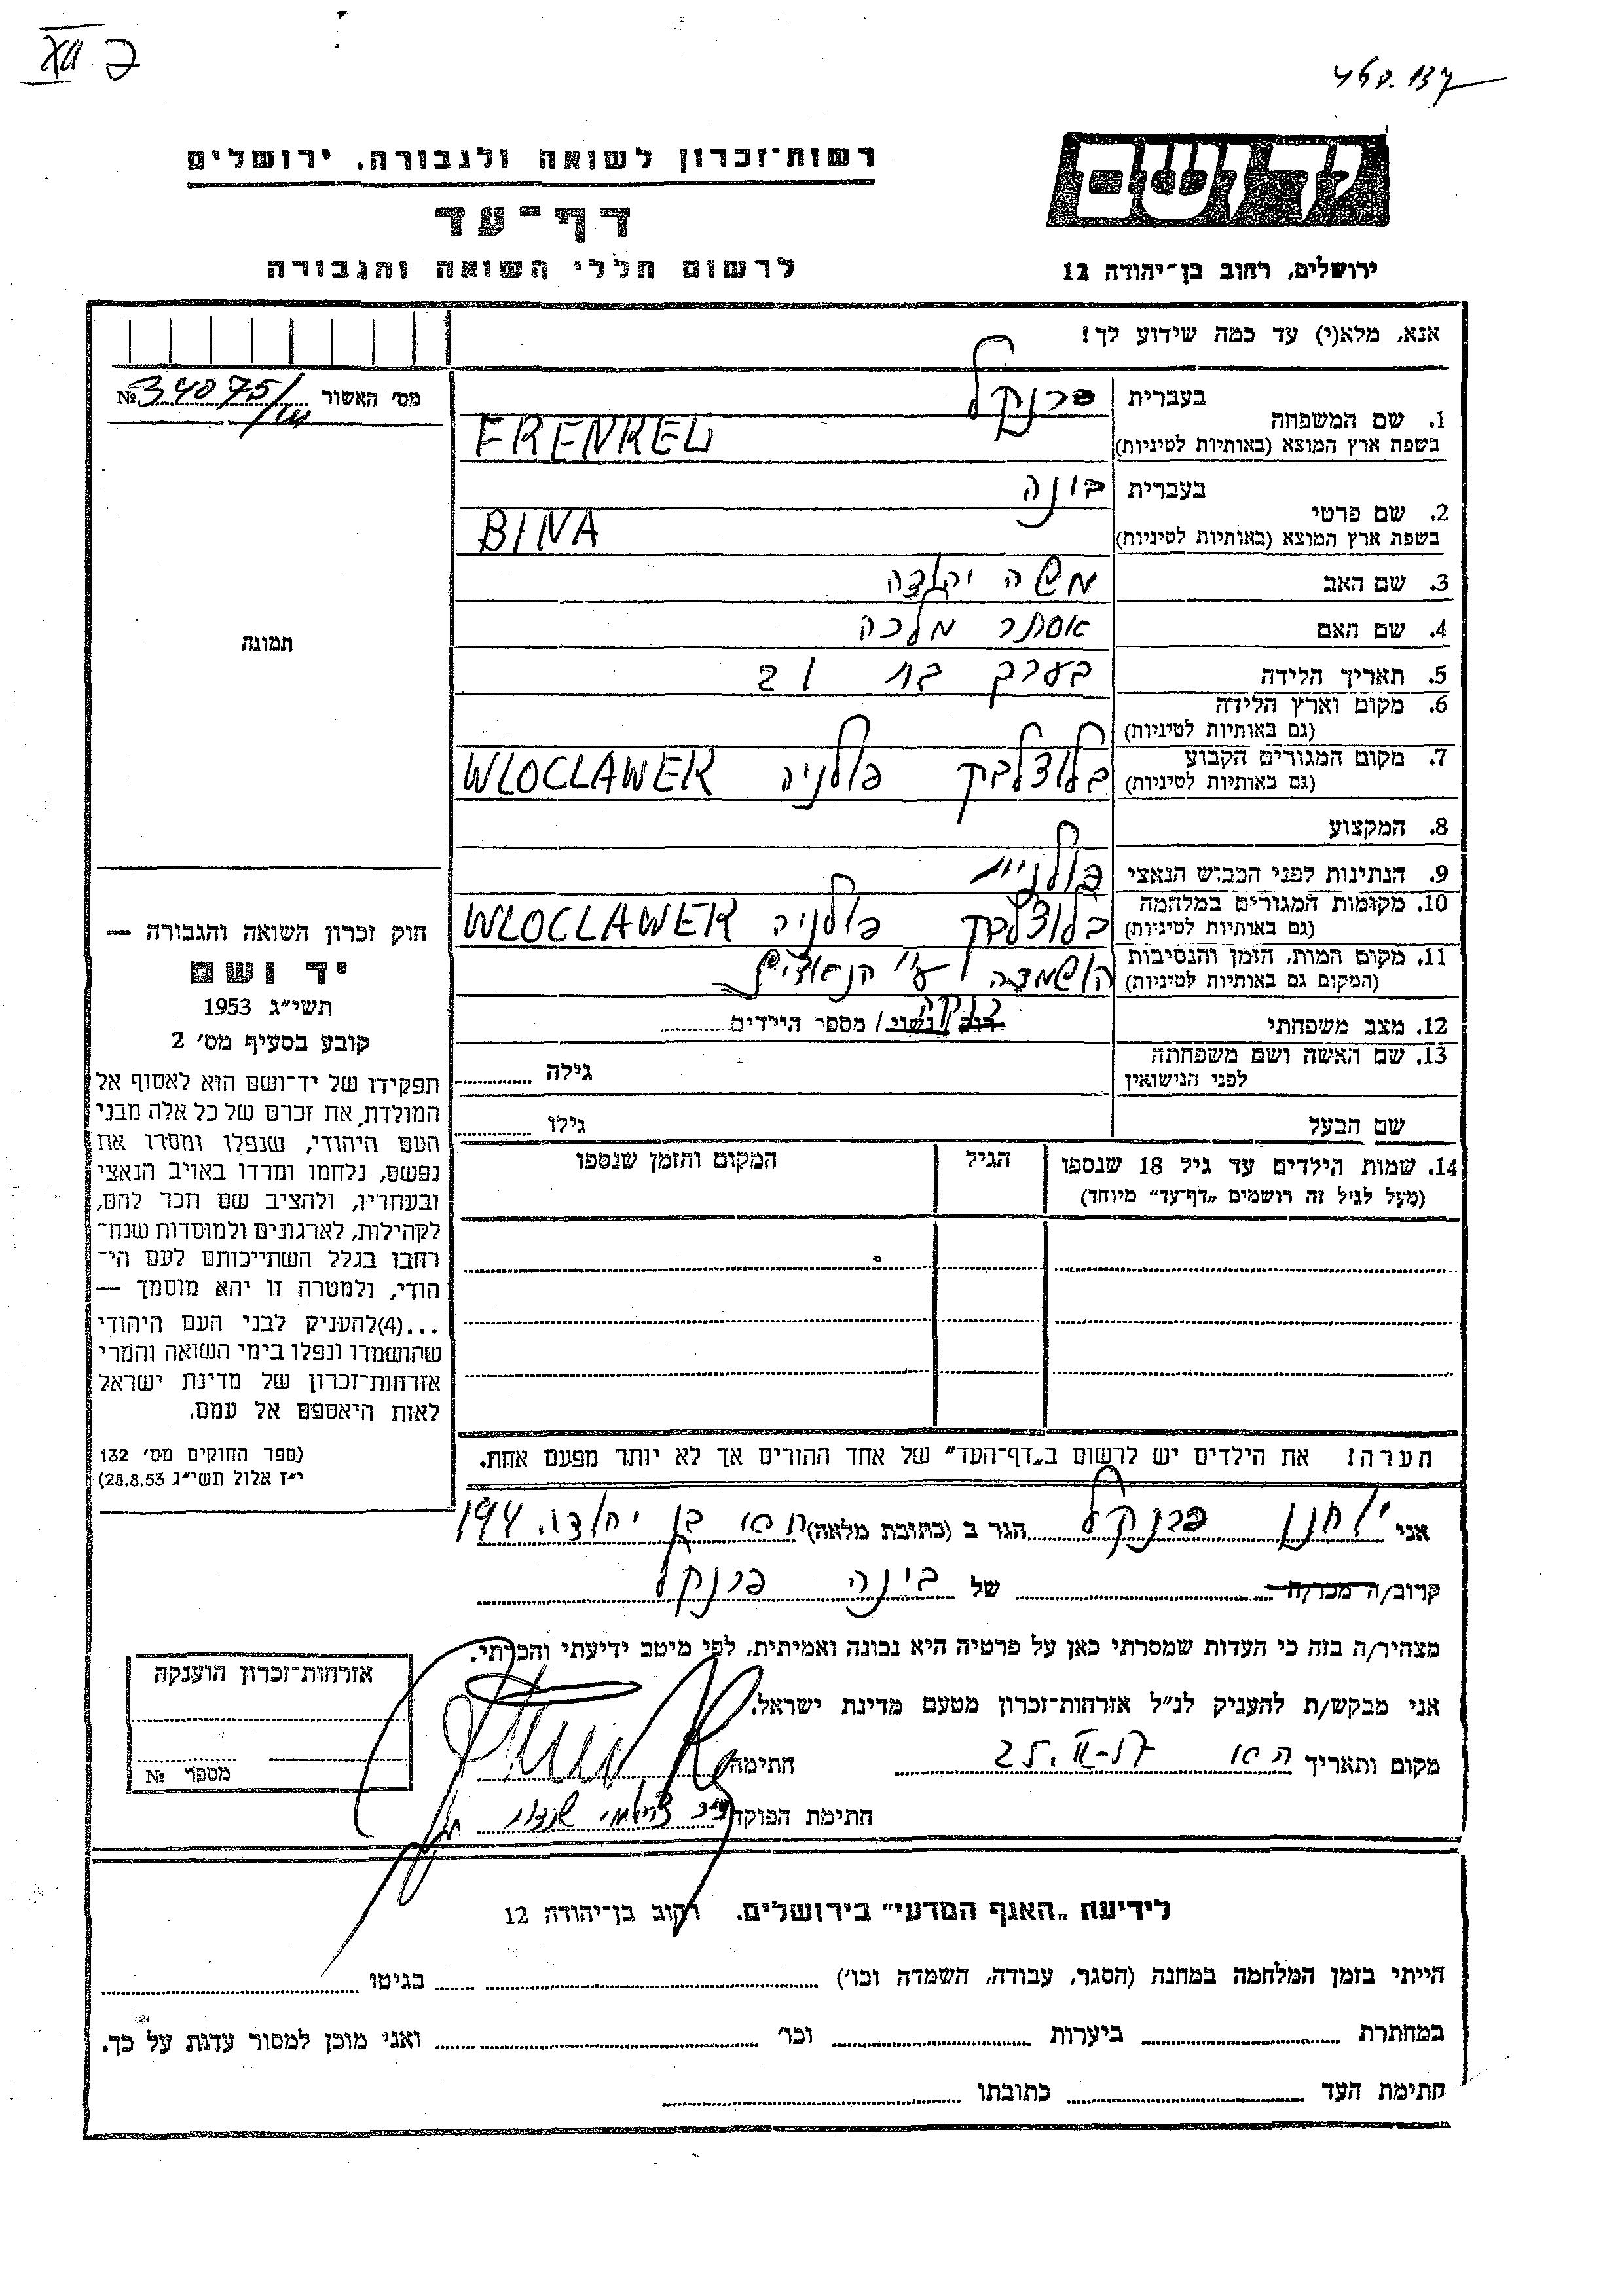 XII כ
468.137
יד ושם
רשות־זכרון לשואה ולגבורה. ירושלים
דף־עד
לרשום חללי השואה והגבורה
ירושלים, רחוב בן־יהודה 12
אנא, מלא(י) עד כמה שידוע לך!
מס׳ האשור № 34075/
1. שם המשפחה בעברית פרנקל
בשפת ארץ המוצא (באותיות לטיניות) FRENKEL
2. שם פרטי בעברית בינה
בשפת ארץ המוצא (באותיות לטיניות) BINA
3. שם האב משה יהודה
4. שם האם אסתר מלכה
תמונה
5. תאריך הלידה בערך בת 21
6. מקום וארץ הלידה
(גם באותיות לטיניות)
7. מקום המגורים הקבוע
(גם באותיות לטיניות) בלוצלבק פולניה WLOCLAWEK
8. המקצוע
9. הנתינות לפני הכבוש הנאצי פולנית
10. מקומות המגורים במלחמה
(גם באותיות לטיניות) בלוצלבק פולניה WLOCLAWEK
11. מקום המות, הזמן והנסיבות
(המקום גם באותיות לטיניות) הושמדה ע״י הנאצים
12. מצב משפחתי רווק/נשוי/ מספר הילדים רווקה
13. שם האשה ושם משפחתה
לפני הנישואין גילה
שם הבעל גילו
14. שמות הילדים עד גיל 18 שנספו הגיל המקום והזמן שנספו
(מעל לגיל זה רושמים „דף־עד״ מיוחד)
הערה! את הילדים יש לרשום ב„דף־העד״ של אחד ההורים אך לא יותר מפעם אחת.
חוק זכרון השואה והגבורה —
יד ושם
תשי״ג 1953
קובע בסעיף מס׳ 2
תפקידו של יד־ושם הוא לאסוף אל
המולדת את זכרם של כל אלה מבני
העם היהודי, שנפלו ומסרו את
נפשם, נלחמו ומרדו באויב הנאצי
ובעוזריו, ולהציב שם וזכר להם,
לקהילות, לארגונים ולמוסדות שנח־
רבו בגלל השתייכותם לעם הי־
הודי, ולמטרה זו יהא מוסמך —
...(4)להעניק לבני העם היהודי
שהושמדו ונפלו בימי השואה והמרי
אזרחות־זכרון של מדינת ישראל
לאות היאספם אל עמם.
(ספר החוקים מס׳ 132
י״ז אלול תשי״ג 28.8.53)
אני יוחנן פרנקל הגר ב (כתובת מלאה) ת״א בן יהודה 194
קרוב/ה מכר/ה של בינה פרנקל
מצהיר/ה בזה כי העדות שמסרתי כאן על פרטיה היא נכונה ואמיתית, לפי מיטב ידיעתי והכרתי.
אני מבקש/ת להעניק לנ״ל אזרחות־זכרון מטעם מדינת ישראל.
מקום ותאריך ת״א 25.II-57 חתימה
חתימת הפוקד
אזרחות־זכרון הוענקה
מספר №
לידיעת „האגף המדעי״ בירושלים. רחוב בן־יהודה 12
הייתי בזמן המלחמה במחנה (הסגר, עבודה, השמדה וכו׳) בגיטו
במחתרת ביערות וכו׳ ואני מוכן למסור עדות על כך.
חתימת העד כתובתו